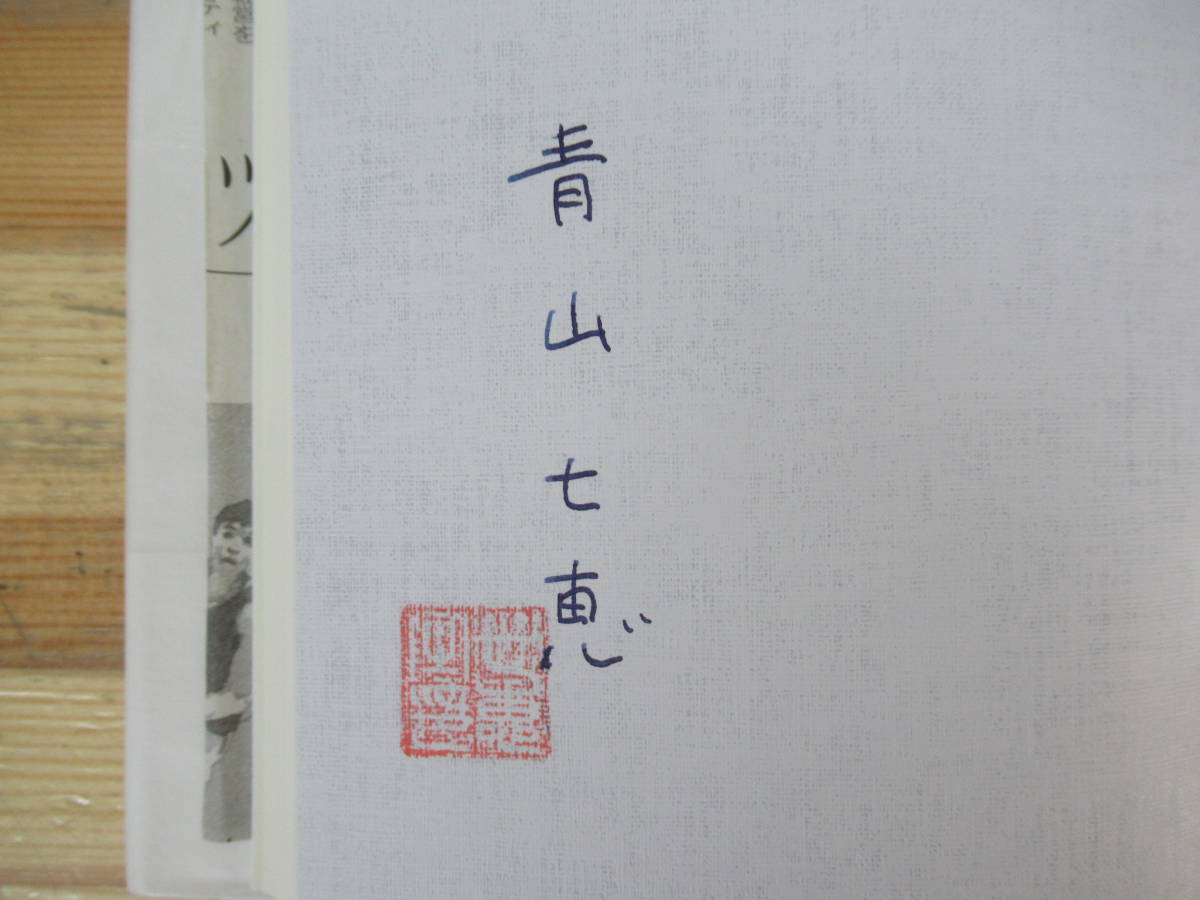 青山七恵
ツ
ティ